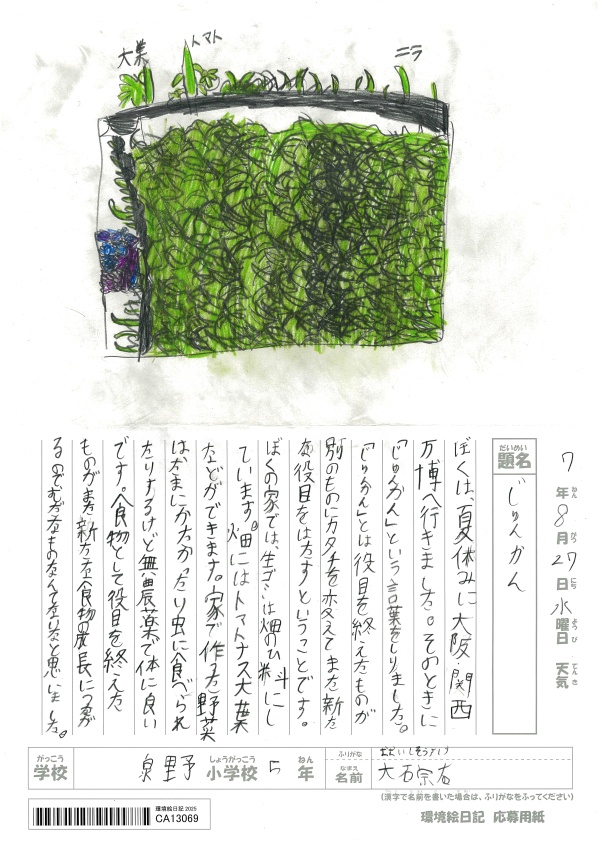 大葉
トマト
ニラ
7年8月27日水曜日 天気
ねん がつ にち ようび てんき
だいめい
題名
じゅんかん
ぼくは、夏休みに大阪・関西
万博へ行きました。そのときに
「じゅんかん」という言葉をしりました。
「じゅんかん」とは役目を終えたものが
別のものにカタチを変えてまた新た
な役目をはたすということです。
ぼくの家では、生ゴミは畑のひ料にし
ています。畑にはトマトナス大葉
などができます。家で作った野菜
はたまにかたかったり虫に食べられ
たりするけど無農薬で体に良い
です。食物として役目を終えた
ものがまた新たな食物の成長につなが
るのでむだなものなんてないなと思いました。
がっこう
学校
泉野
しょうがっこう
小学校
5
ねん
年
ふりがな
なまえ
名前
大石宗右
(漢字で名前を書いた場合は、ふりがなをふってください)
環境絵日記 2025
CA13069
環境絵日記 応募用紙